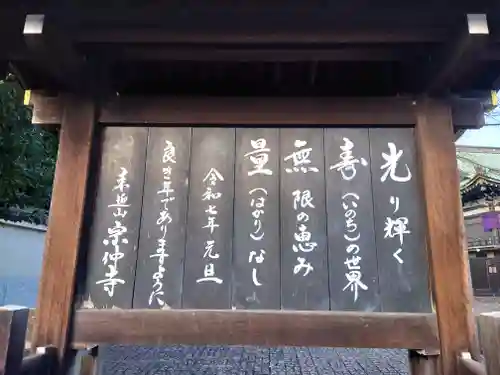 光り輝く
寿(いのち)の世界
無限の恵み
量(はかり)なし
令和七年 元旦
良き年でありますように
宗仲寺